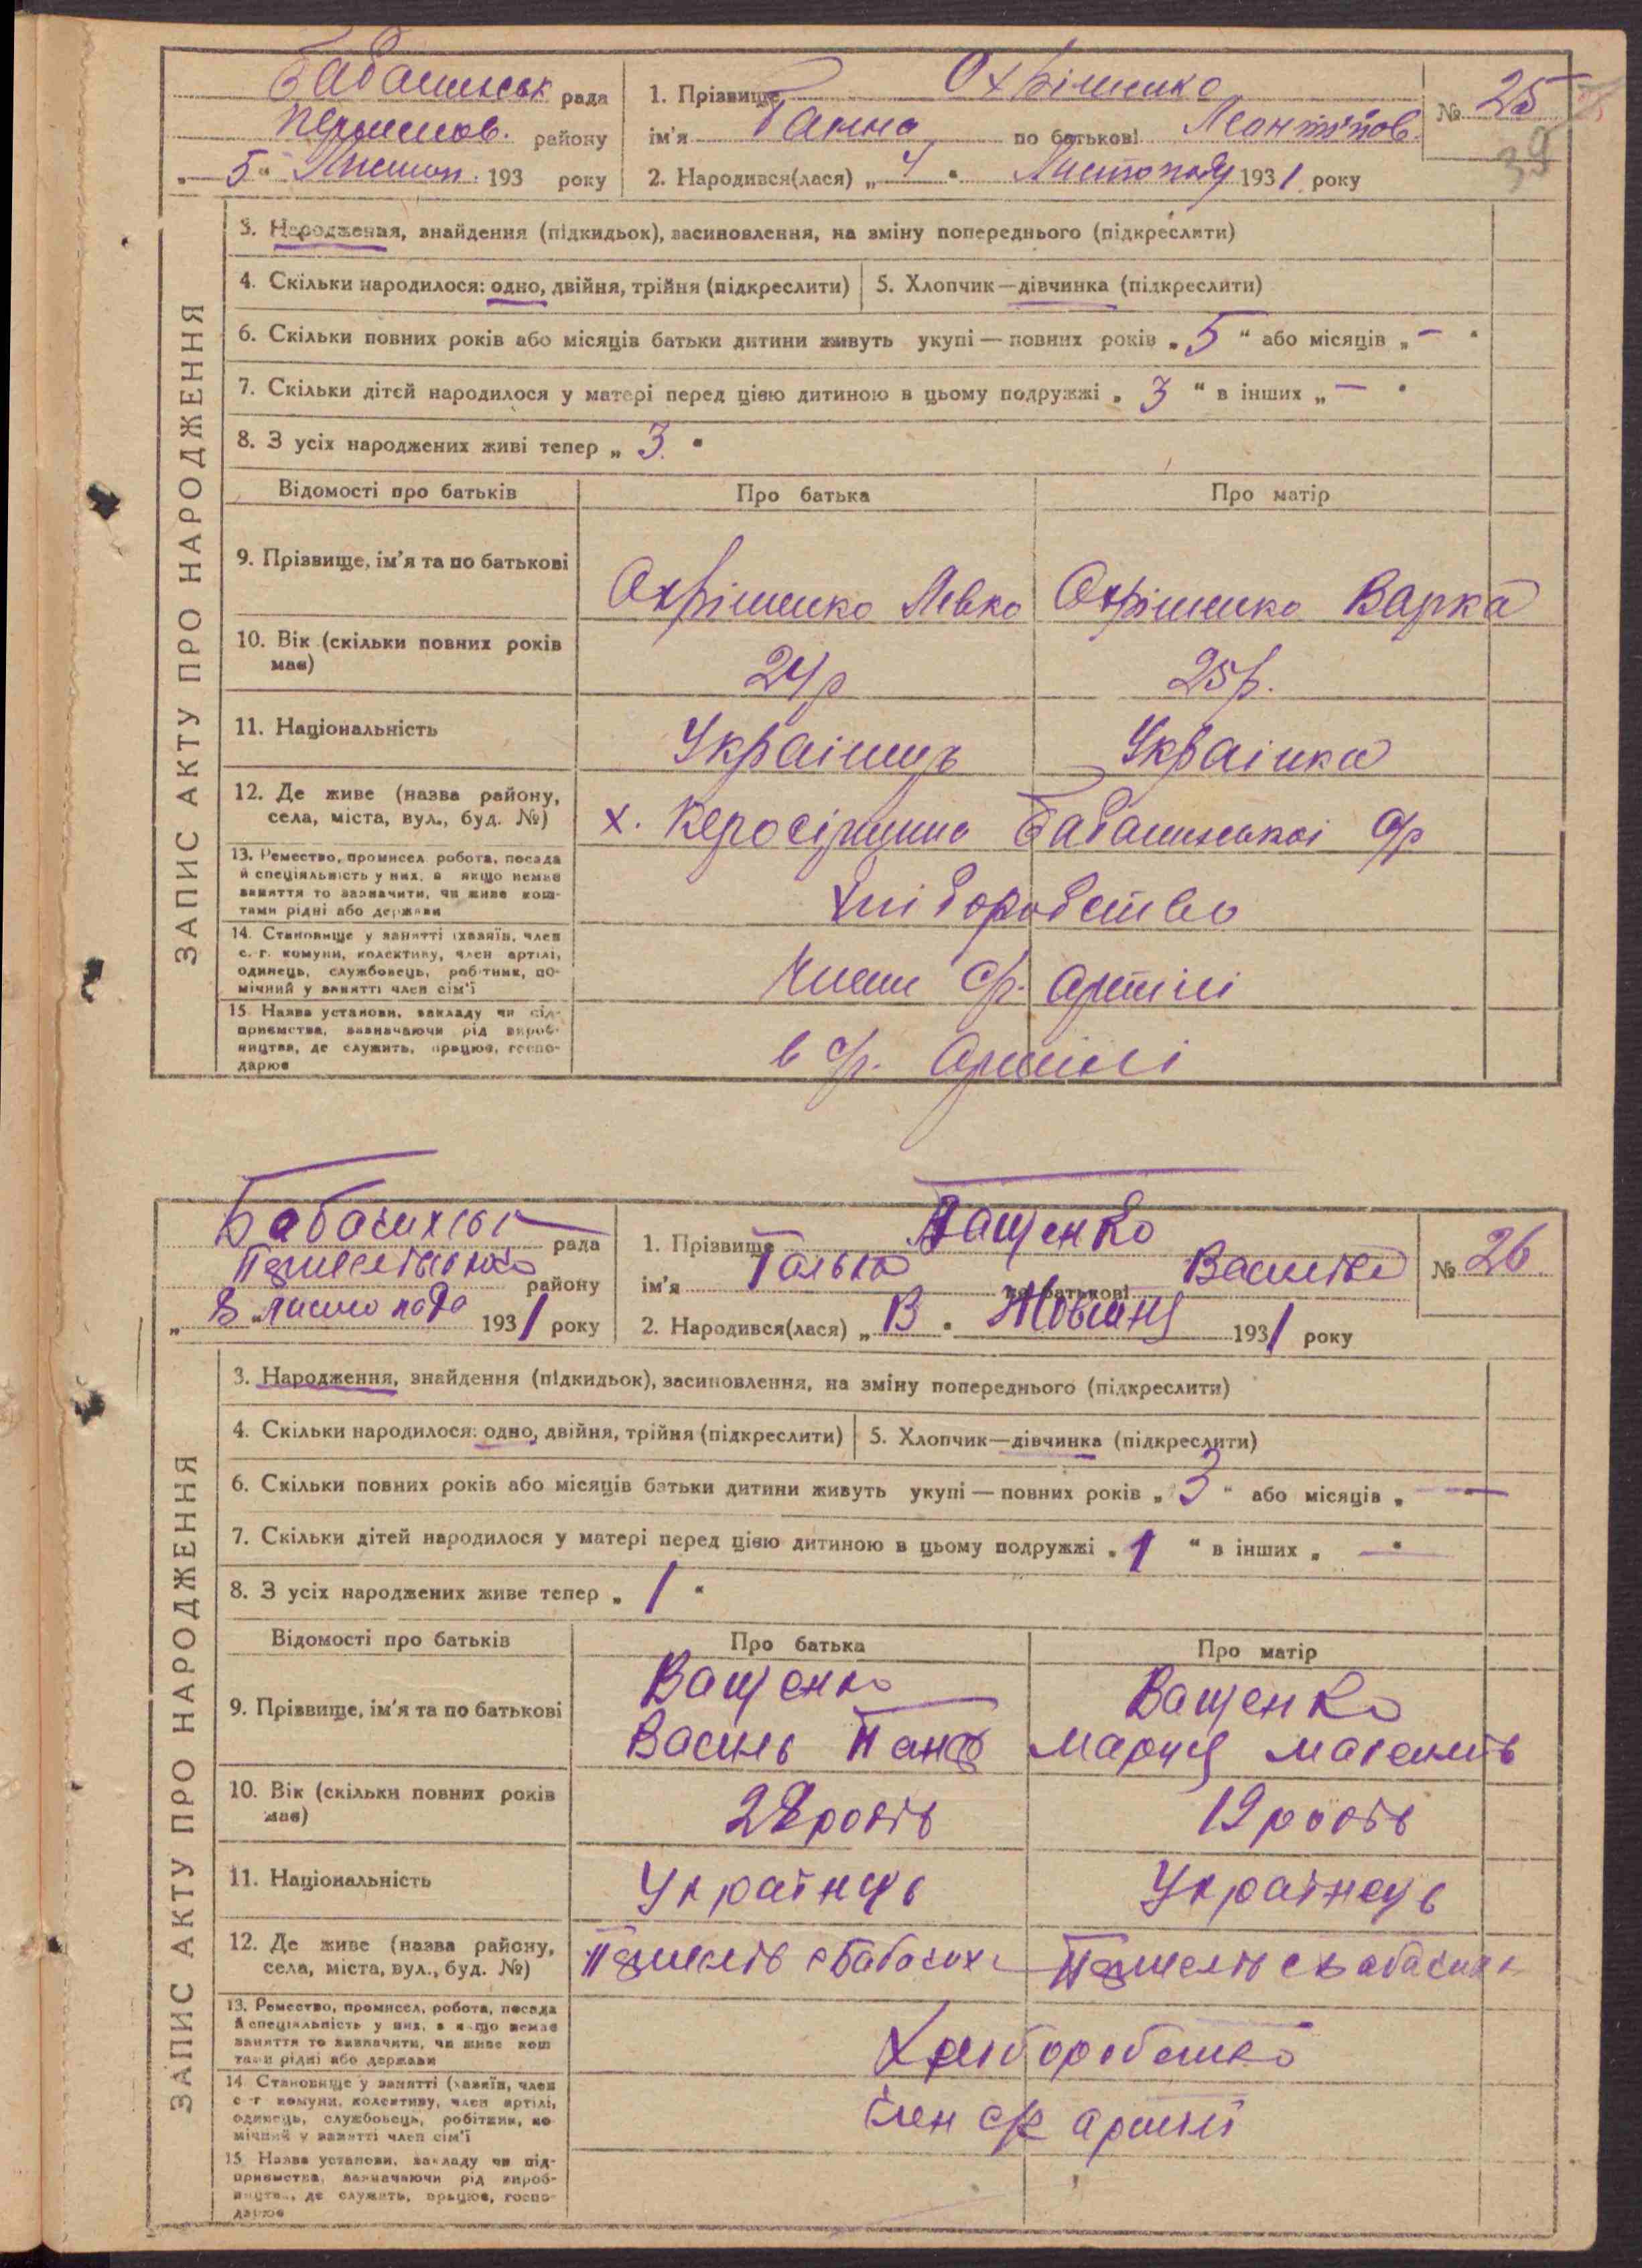 рада
району
„ 5 “ 193 року
1. Прізвище Охрішенко
ім'я Ганна по батькові
2. Народився(лася) „ 4 “ Листопаду 1931 року
№ 25
39
ЗАПИС АКТУ ПРО НАРОДЖЕННЯ
3. Народження, знайдення (підкидьок), засиновлення, на зміну попереднього (підкреслити)
4. Скільки народилося: одно, двійня, трійня (підкреслити) 5. Хлопчик—дівчинка (підкреслити)
6. Скільки повних років або місяців батьки дитини живуть укупі — повних років „ 5 “ або місяців „ — “
7. Скільки дітей народилося у матері перед цією дитиною в цьому подружжі „ 3 “ в інших „ — “
8. З усіх народжених живі тепер „ 3. “
Відомості про батьків Про батька Про матір
9. Прізвище, ім'я та по батькові Охрішенко Левко Охрішенко Варка
10. Вік (скільки повних років має) 24р 25р.
11. Національність Українць Українка
12. Де живе (назва району,
села, міста, вул., буд. №) х.
13. Ремество, промисел, робота, посада
й спеціяльність у них, а якщо немає
заняття то зазначити, чи живе кош-
тами рідні або держави
Хліборобство
14. Становище у занятті (хазяїн, член
с.-г. комуни, колективу, член артілі,
одинець, службовець, робітник, по-
мічний у занятті член сім'ї
Член с/г. артілі
15. Назва установи, закладу чи під-
приємства, зазначаючи рід вироб-
ництва, де служить, працює, госпо-
дарює
в с/г. артілі
рада
району
„ 8 “ листопада 1931 року
1. Прізвище Ващенко
ім'я Галька по батькові Василів
2. Народився(лася) „ “ Жовтня 1931 року
№ 26.
ЗАПИС АКТУ ПРО НАРОДЖЕННЯ
3. Народження, знайдення (підкидьок), засиновлення, на зміну попереднього (підкреслити)
4. Скільки народилося: одно, двійня, трійня (підкреслити) 5. Хлопчик—дівчинка (підкреслити)
6. Скільки повних років або місяців батьки дитини живуть укупі — повних років „ 3 “ або місяців „ — “
7. Скільки дітей народилося у матері перед цією дитиною в цьому подружжі „ 1 “ в інших „ — “
8. З усіх народжених живе тепер „ 1 “
Відомості про батьків Про батька Про матір
Ващенко Ващенко
9. Прізвище, ім'я та по батькові Василь Панф Мария
10. Вік (скільки повних років має) 28 років 19 років
11. Національність Українць Українець
12. Де живе (назва району,
села, міста, вул., буд. №)
13. Ремество, промисел, робота, посада
й спеціяльність у них, а якщо немає
заняття то зазначити, чи живе кош
тами рідні або держави
14. Становище у занятті (хазяїн, член
с-г комуни, колективу, член артілі,
одинець, службовець, робітник, по
мічний у занятті член сім'ї
Член с/г артілі
15. Назва установи, закладу чи під-
приємства, зазначаючи рід вироб-
ництва, де служить, працює, госпо-
дарює